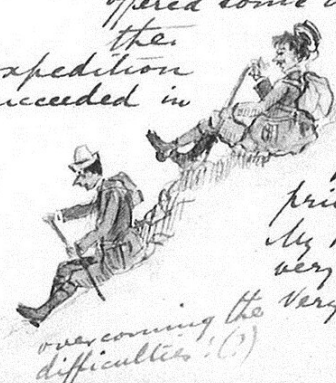 offered some
the
xpedition
ucceeded in
pri
My
very
very
overcoming the
difficulties! (?)